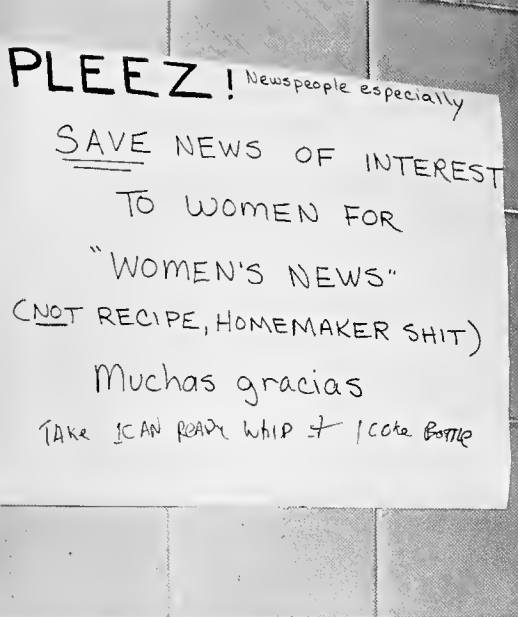 PLEEZ! Newspeople especially
SAVE NEWS OF INTEREST
TO WOMEN FOR
"WOMEN'S NEWS"
(NOT RECIPE, HOMEMAKER SHIT)
Muchas gracias
TAKE 1CAN READY WHIP + 1 COKE BOTTLE